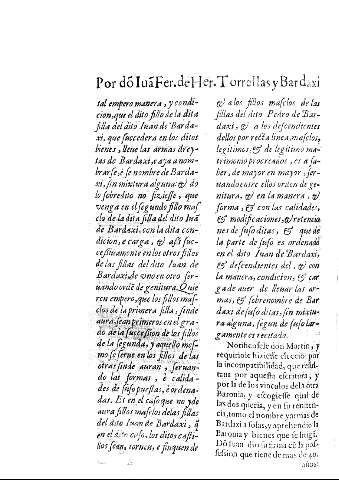 Por dõ Iuã Fer. de Her. Torrellas y Bardaxi
tal empero manera, y condi-
cion, que el dito fillo de la dita
filla del dito Iuan de Barda-
xi, que succedera en los ditos
bienes, lieue las armas dreytas
de Bardaxi, e aya a nom-
brarse, è se nombre de Barda-
xi, sin mixtura alguna & do
lo sobredito no fiziesse, que
venga en el segundo fillo mas-
clo de la dita filla del dito Iuã
de Bardaxi, con la dita con-
dicion, e carga, & assi suc-
cessiuamente en los otros fillos
de las fillas del dito Iuan de
Bardaxi, de vno en otro ser-
uando ordẽ de genitura. Quie
ren empero, que los fillos mas-
clos de la primera filla, sinde
aura, sean primeros en el gra-
do de la succession de los fillos
de la segunda, y aquello mes-
mo se serue en los fillos de las
otras sinde auran, seruan-
do las formas, è calida-
des de suso puestas, è ordena-
das. Et en el caso que no y de
aura fillos masclos de las fillas
del dito Iuan de Bardaxi, ù
en el dito caso, los ditos casti-
llos sean, tornen, e finquen de
& a los fillos masclos de las
fillas del dito Pedro de Bar-
daxi, & a los descendientes
dellos por recta linea, masclos,
legitimos, & de legitimo ma-
trimonio procreados, et a sa-
ber, de mayor en mayor, ser-
uando entre ellos orden de ge-
nitura, & en la manera, &
forma, & con las calidades,
& modificaciones, & retencio
nes de suso ditas, & que de
la parte de suso es ordenado
en el dito Iuan de Bardaxi,
& descendientes del, & con
la manera, condicion, & car
ga de auer de lleuar las ar-
mas, & sobrenombre de Bar
daxi de suso ditas, sin mixtu-
ra alguna, segun de suso lar-
gamente es recitado.
Notificasele don Martin, y
requiriole hiziesse eleccio por
la incompatibilidad, que resul-
tene por aquesta escritura, y
por la de los vinculos de la otra
Baronia, y escogiesse qual de
las dos queria, y en su reniten-
cia, tomo el nombre y armas de
Bardaxi a solas, y aprehendio la
Baronia y bienes que se litiga.
Dõ Iuan dio la firma cõ la pos-
session que tiene de mas de 40.
años.